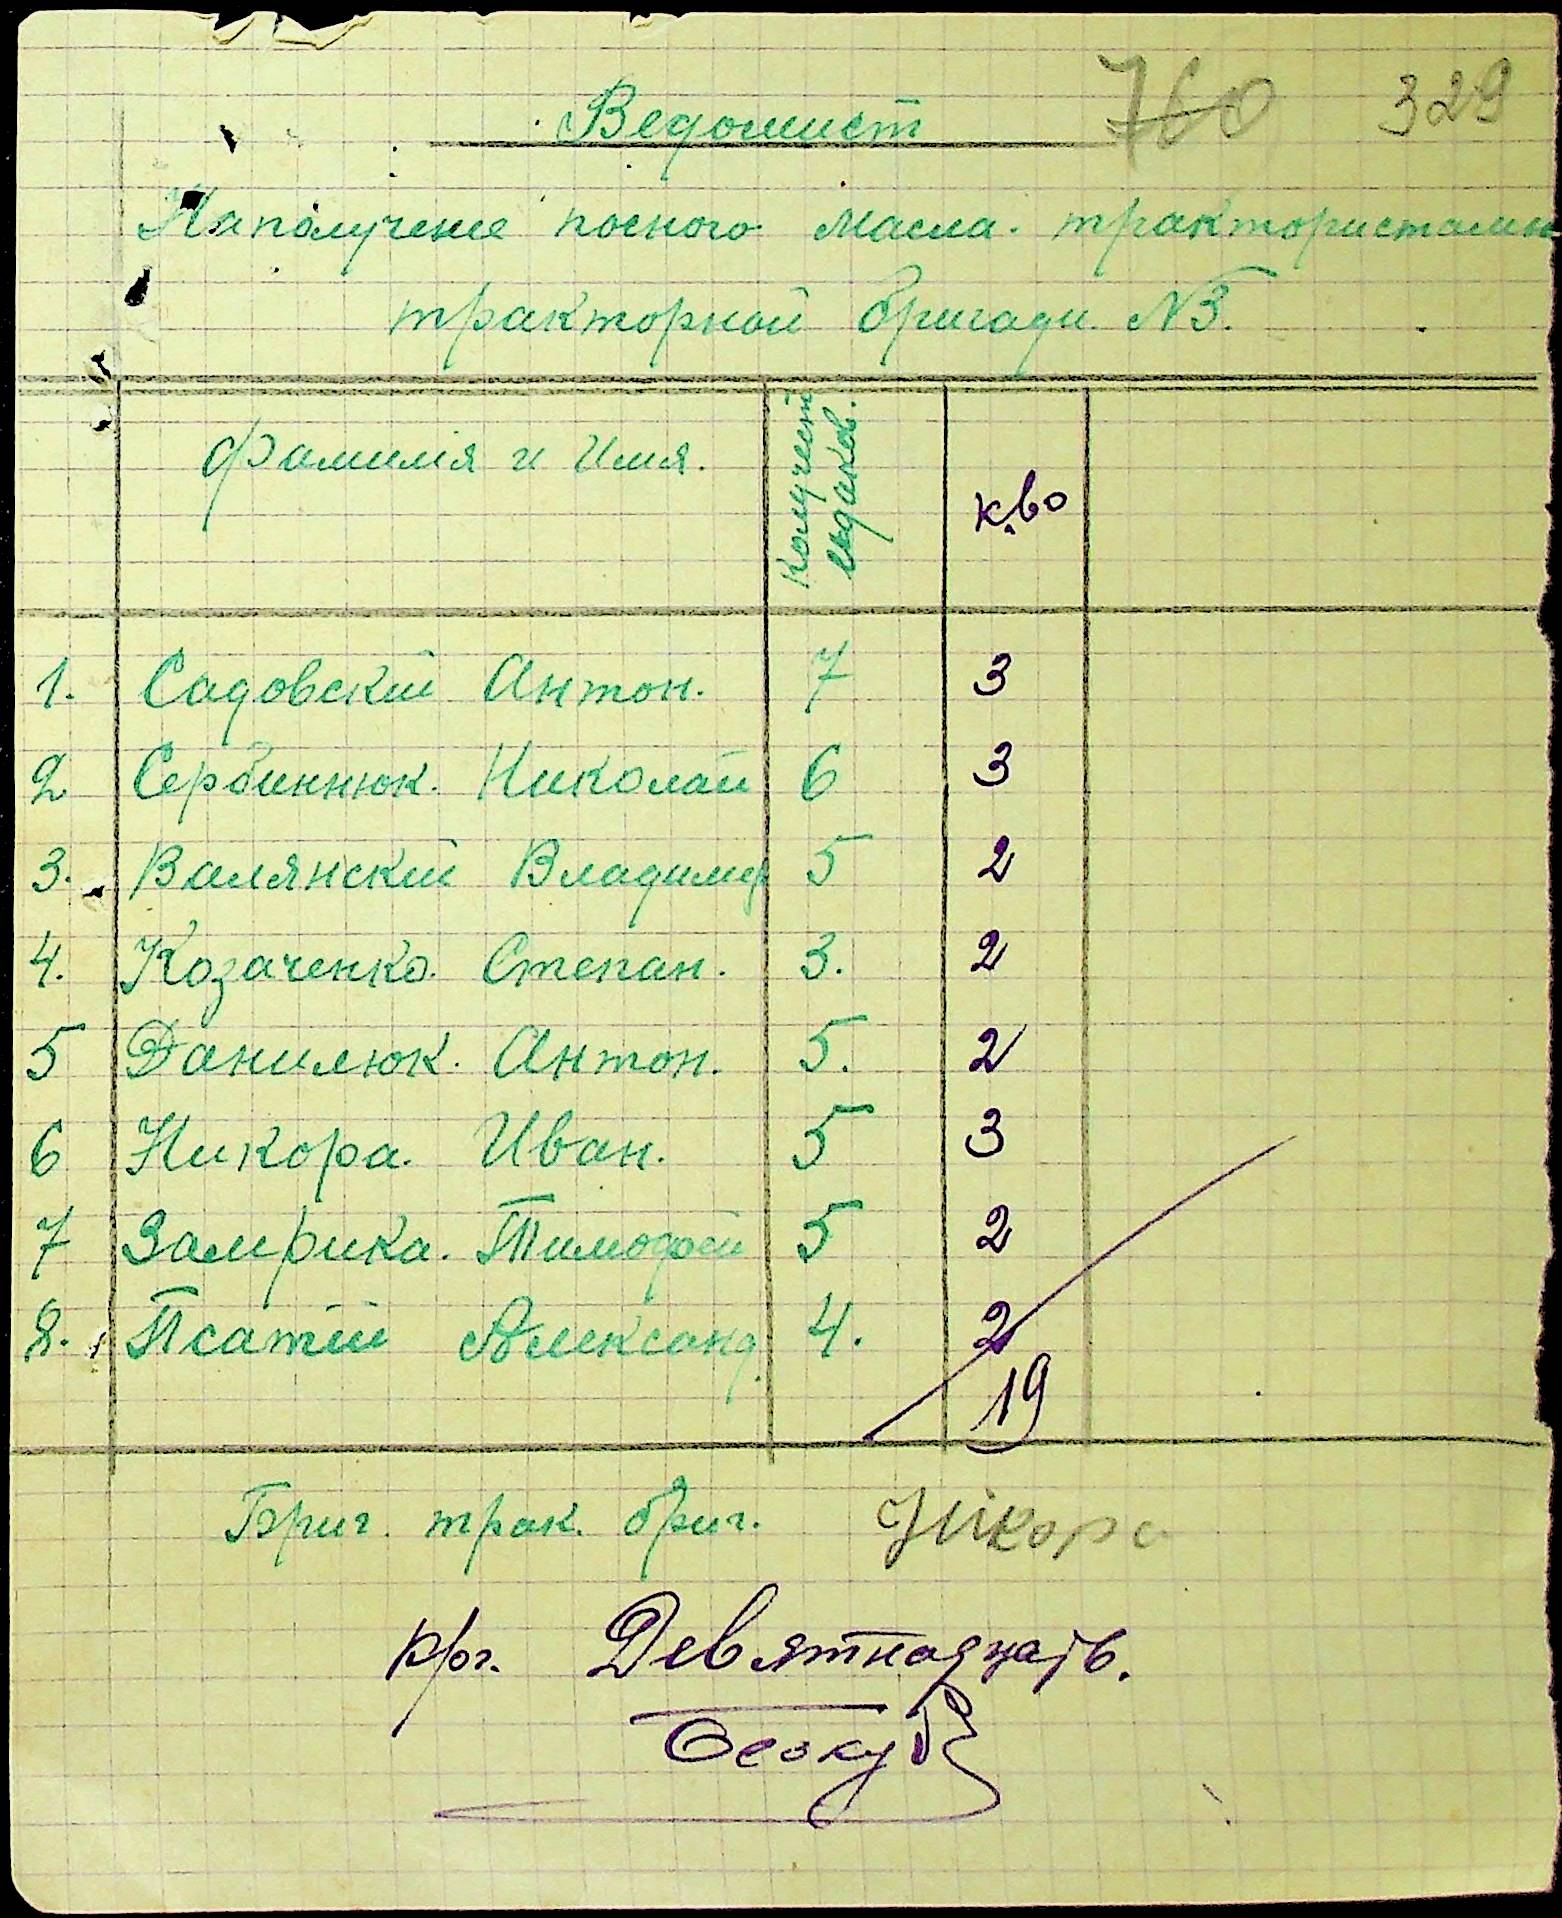 760 329
Ведомист
Наполучение посного масла. трактористами
тракторной бригади N3.
Фамилія и Имя. Количест едаков. к,во
1. Садовскій Антон. 7 3
2 Сербиннюк. Николай 6 3
3. Валянскій Владимир 5 2
4. Козаченко. Степан. 3. 2
5 Данилюк. Антон. 5. 2
6 Никора. Иван. 5 3
7 Замрика. Тимофей 5 2
8. Псатій Александ. 4. 2
19
Бриг. трак. бриг. Нікора
Девятнадцать.